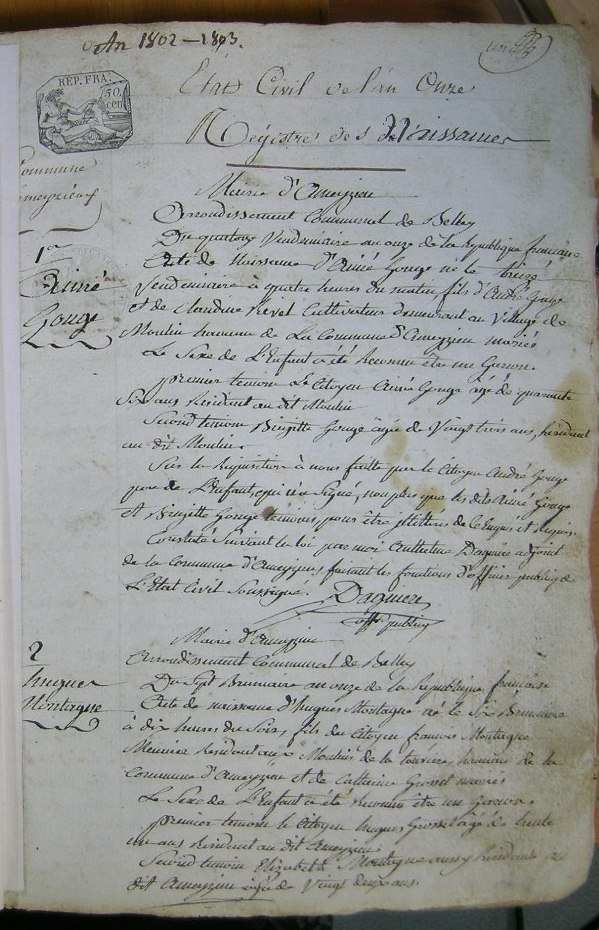 An 1802-1803.
REP. FRA.
50 cen
Etat Civil de l'an Onze
Registre des Naissances
Commune
d'ameyzieu
Mairie d'Ameyzieu
Arrondissement Communal de Belley
1er
Aimé
Gouge
Du quatorze Vendemiaire an onze de la Republique française
Acte de Naissance d'Aimé Gouge né le treize
Vendemiaire à quatre heures du matin fils d'André Gouge
et de Claudine Revel Cultivateurs demeurant au Village de
Moulin hameau de La Commune d'Ameyzieu mariés
Le Sexe de L'Enfant a été Reconnu être un Garçon.
premier temoin Le Citoyen Aimé Gouge âgé de quarante
Six ans Résidant au dit Moulin
Second temoin Brigitte Gouge agée de Vingt trois ans, Résidant
au dit Moulin.
Sur la Requisition à nous faitte par le Citoyen André Gouge
pere de L'Enfant, qui n'a Signé, non plus que les dits Aimé Gouge
et Brigitte Gouge temoins, pour être illitérés de Enquis et Requis.
Constaté Suivant la loi par moi Anthelme Daguere adjoint
de la Commune d'Ameyzieu, faisant les fonctions d'officier public de
L'Etat Civil Soussigné.
Daguere
offr public
2
hugues
Montagne
Mairie d'Ameyzieu
Arrondissement Communal de Belley
Du Sept Brumaire an onze de la Republique française
Acte de naissance d'hugues Montagne né le Six Brumaire
à dix heures du Soir, fils du Citoyen francois Montagne
Meunier Résidant aux Moulins de la hameau de la
Commune d'Ameyzieu et de Catherine Grosset mariés
Le Sexe de L'Enfant a été Reconnu être un Garcon.
premier temoin le Citoyen hugues Grosset agé de trente
un ans Résidant au dit Ameyzieu
Second temoin Elizabeth Montagne aussy Résidante au
dit Ameyzieu agée de Vingt deux ans.